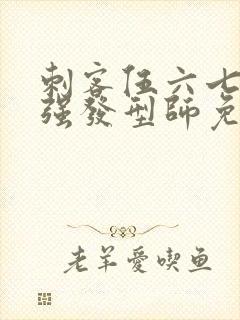 刺客伍六七
強發型師免
老羊愛喫鱼